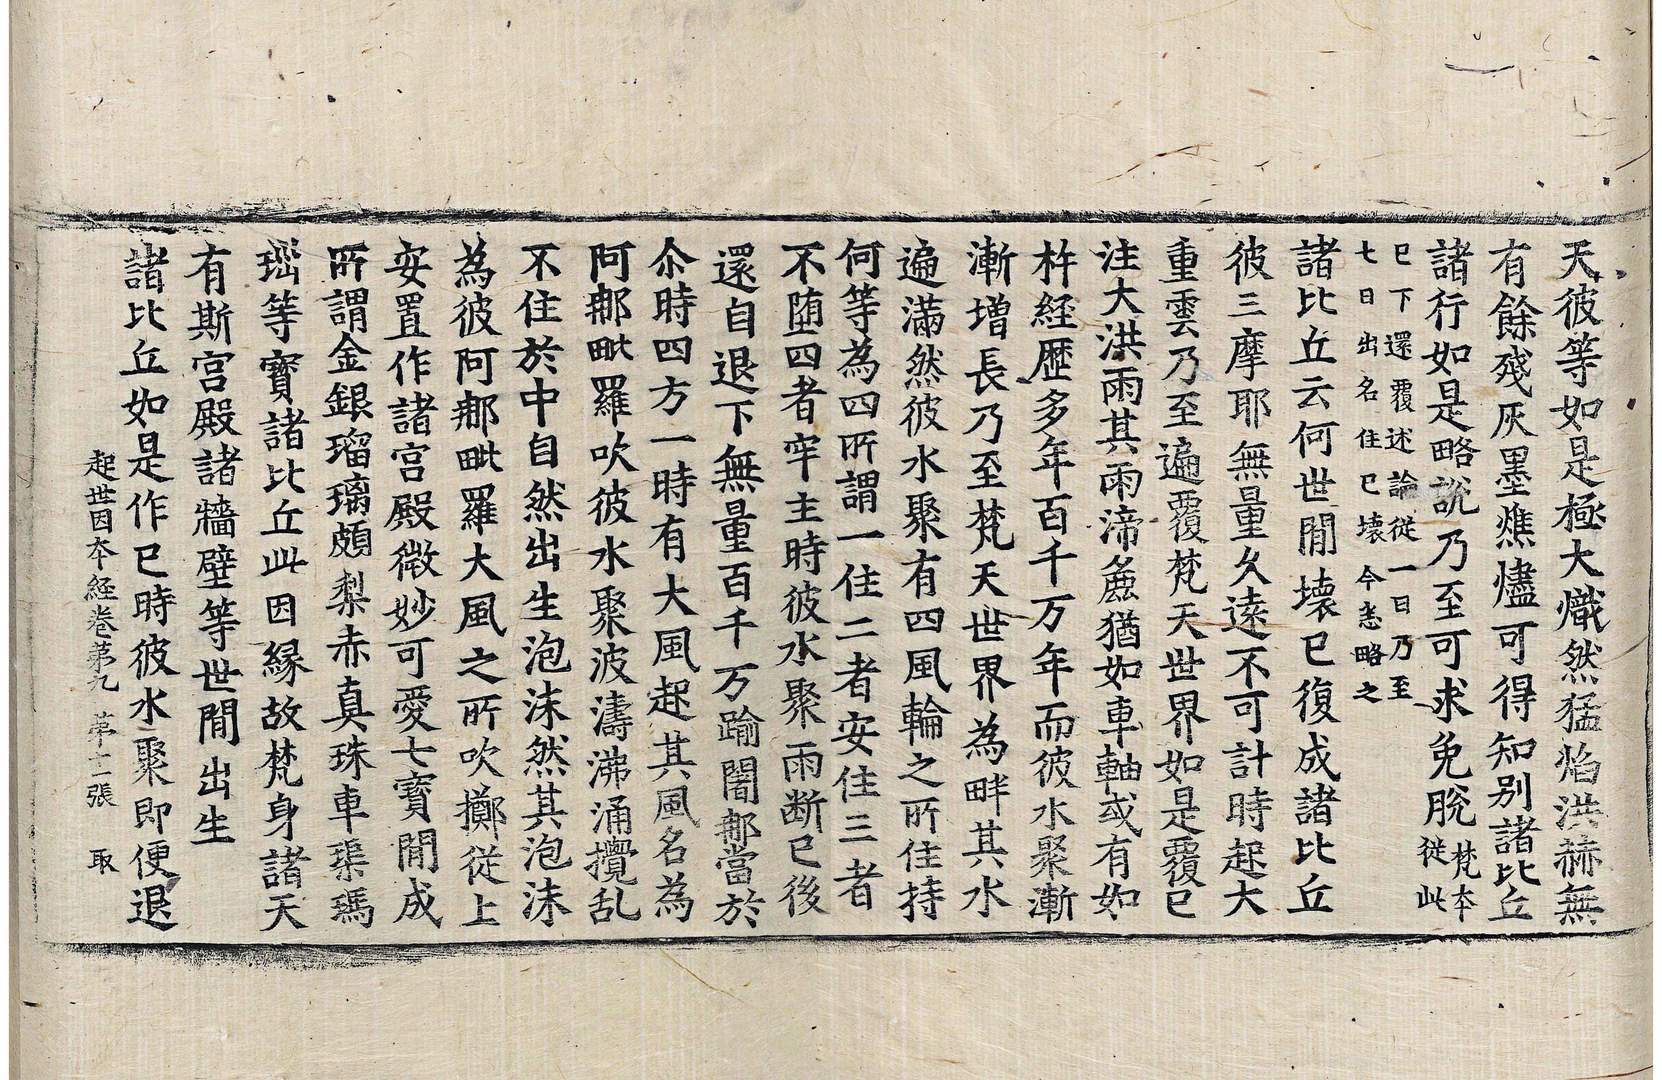 天彼等如是極大熾然猛焰洪赫無
有餘殘灰墨燋燼可得知別諸比丘
諸行如是略說乃至可求免脫梵本從此
巳下還覆述論從一日乃至
七日出名住巳壞今恙略之
諸比丘云何世閒壞巳復成諸比丘
彼三摩耶無量久遠不可計時起大
重雲乃至遍覆梵天世界如是覆巳
注大洪雨其雨渧麁猶如車軸或有如
杵經歷多年百千万年而彼水聚漸
漸增長乃至梵天世界為畔其水
遍滿然彼水聚有四風輪之所住持
何等為四所謂一住二者安住三者
不墮四者牢主時彼水聚雨断巳後
還自退下無量百千万踰闍郍當於
尒時四方一時有大風起其風名為
阿郍毗羅吹彼水聚波濤沸涌攪乱
不住於中自然出生泡沫然其泡沫
為彼阿郍毗羅大風之所吹擲從上
安置作諸宮殿微妙可愛七寶閒成
所謂金銀瑠璃頗梨赤真珠車𤦲瑪
瑙等寶諸比丘此因緣故梵身諸天
有斯宮殿諸牆壁等世閒出生
諸比丘如是作巳時彼水聚即便退
起世因夲經卷苐九　苐十二張　取